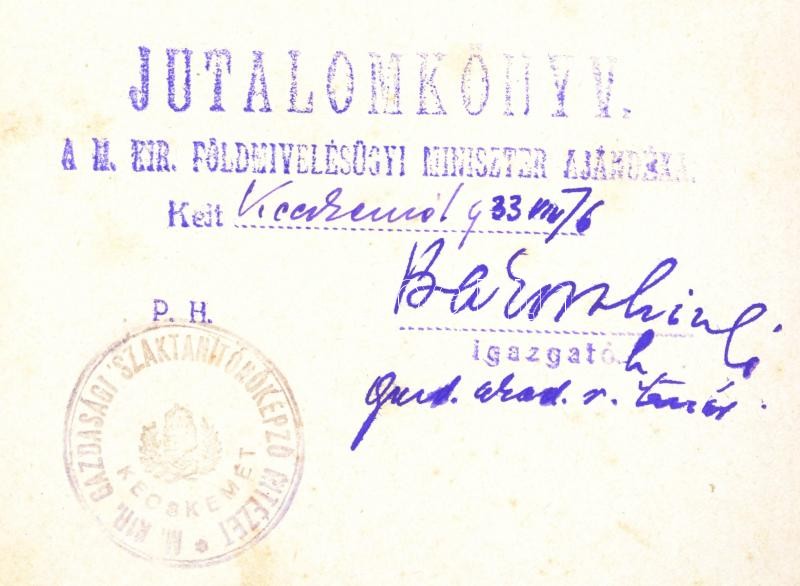 JUTALOMKÖNYV.
A M. KIR. FÖLDMIVELÉSÜGYI MINISZTER AJÁNDÉKA.
Kelt Kecskemét 933 VIII/6
P. H.
igazgató h
gazd. akad. r. tanár.
M. KIR. GAZDASÁGI SZAKTANÍTÓNŐKÉPZŐ INTÉZET
KECSKEMÉT